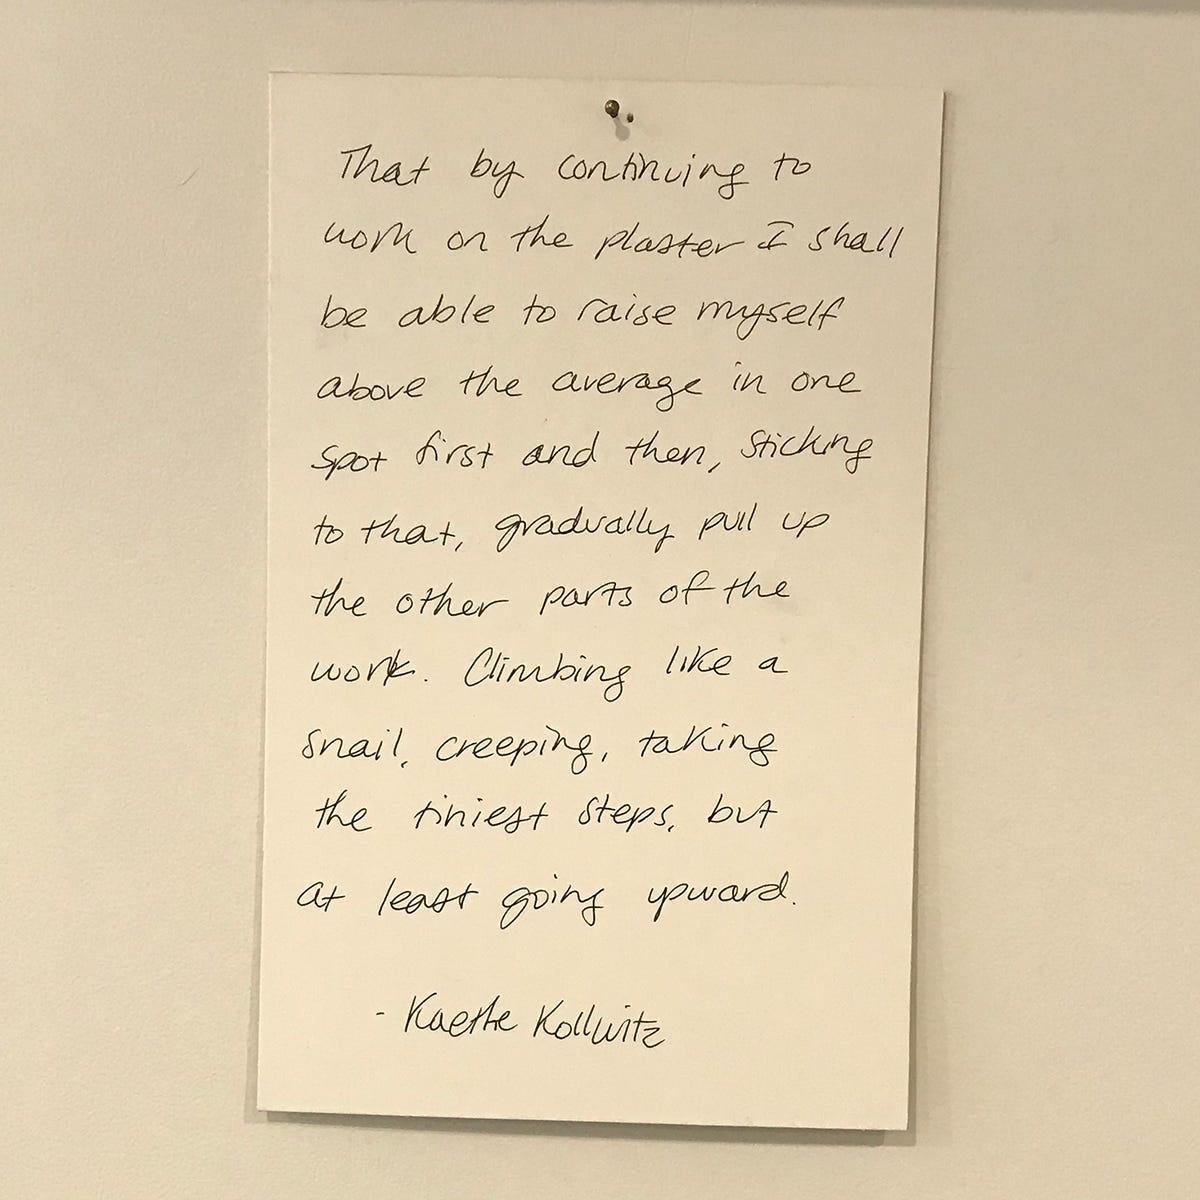 That by continuing to
work on the plaster I shall
be able to raise myself
above the average in one
spot first and then, sticking
to that, gradually pull up
the other parts of the
work. Climbing like a
snail, creeping, taking
the tiniest steps, but
at least going upward.
- Kaethe Kollwitz